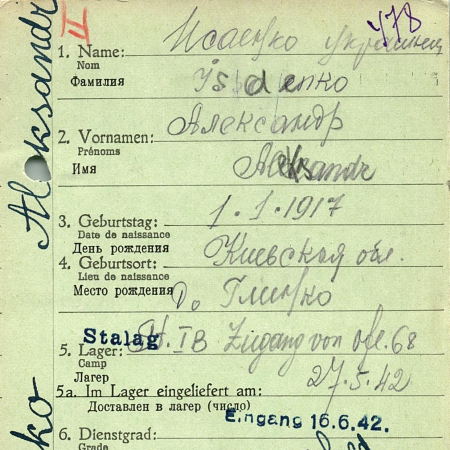 Aleksandr
ko
II
У78
Исаенко украинец
1. Name:
Nom
Фамилия
Isaenko
2. Vornamen: Александр
Prénoms
Имя
Aleksandr
3. Geburtstag: 1.1.1917
Date de naissance
День рождения
4. Geburtsort: Киевская обл.
Lieu de naissance
Место рождения
Stalag
5. Lager: St. IB Zugang von Ofl. 68
Camp
Лагерь
27.5.42
5a. Im Lager eingeliefert am:
Доставлен в лагер (число)
Eingang 16.6.42.
6. Dienstgrad:
Grade